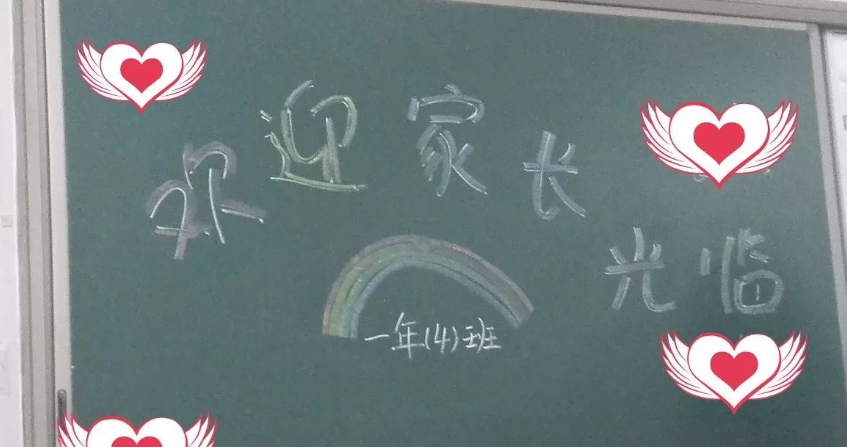 欢迎家长光临
一年(4)班